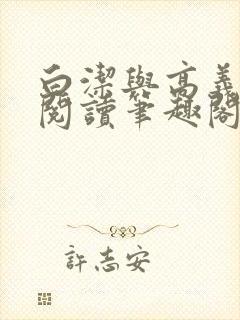 白潔與高義
閱讀筆趣閣
許志安